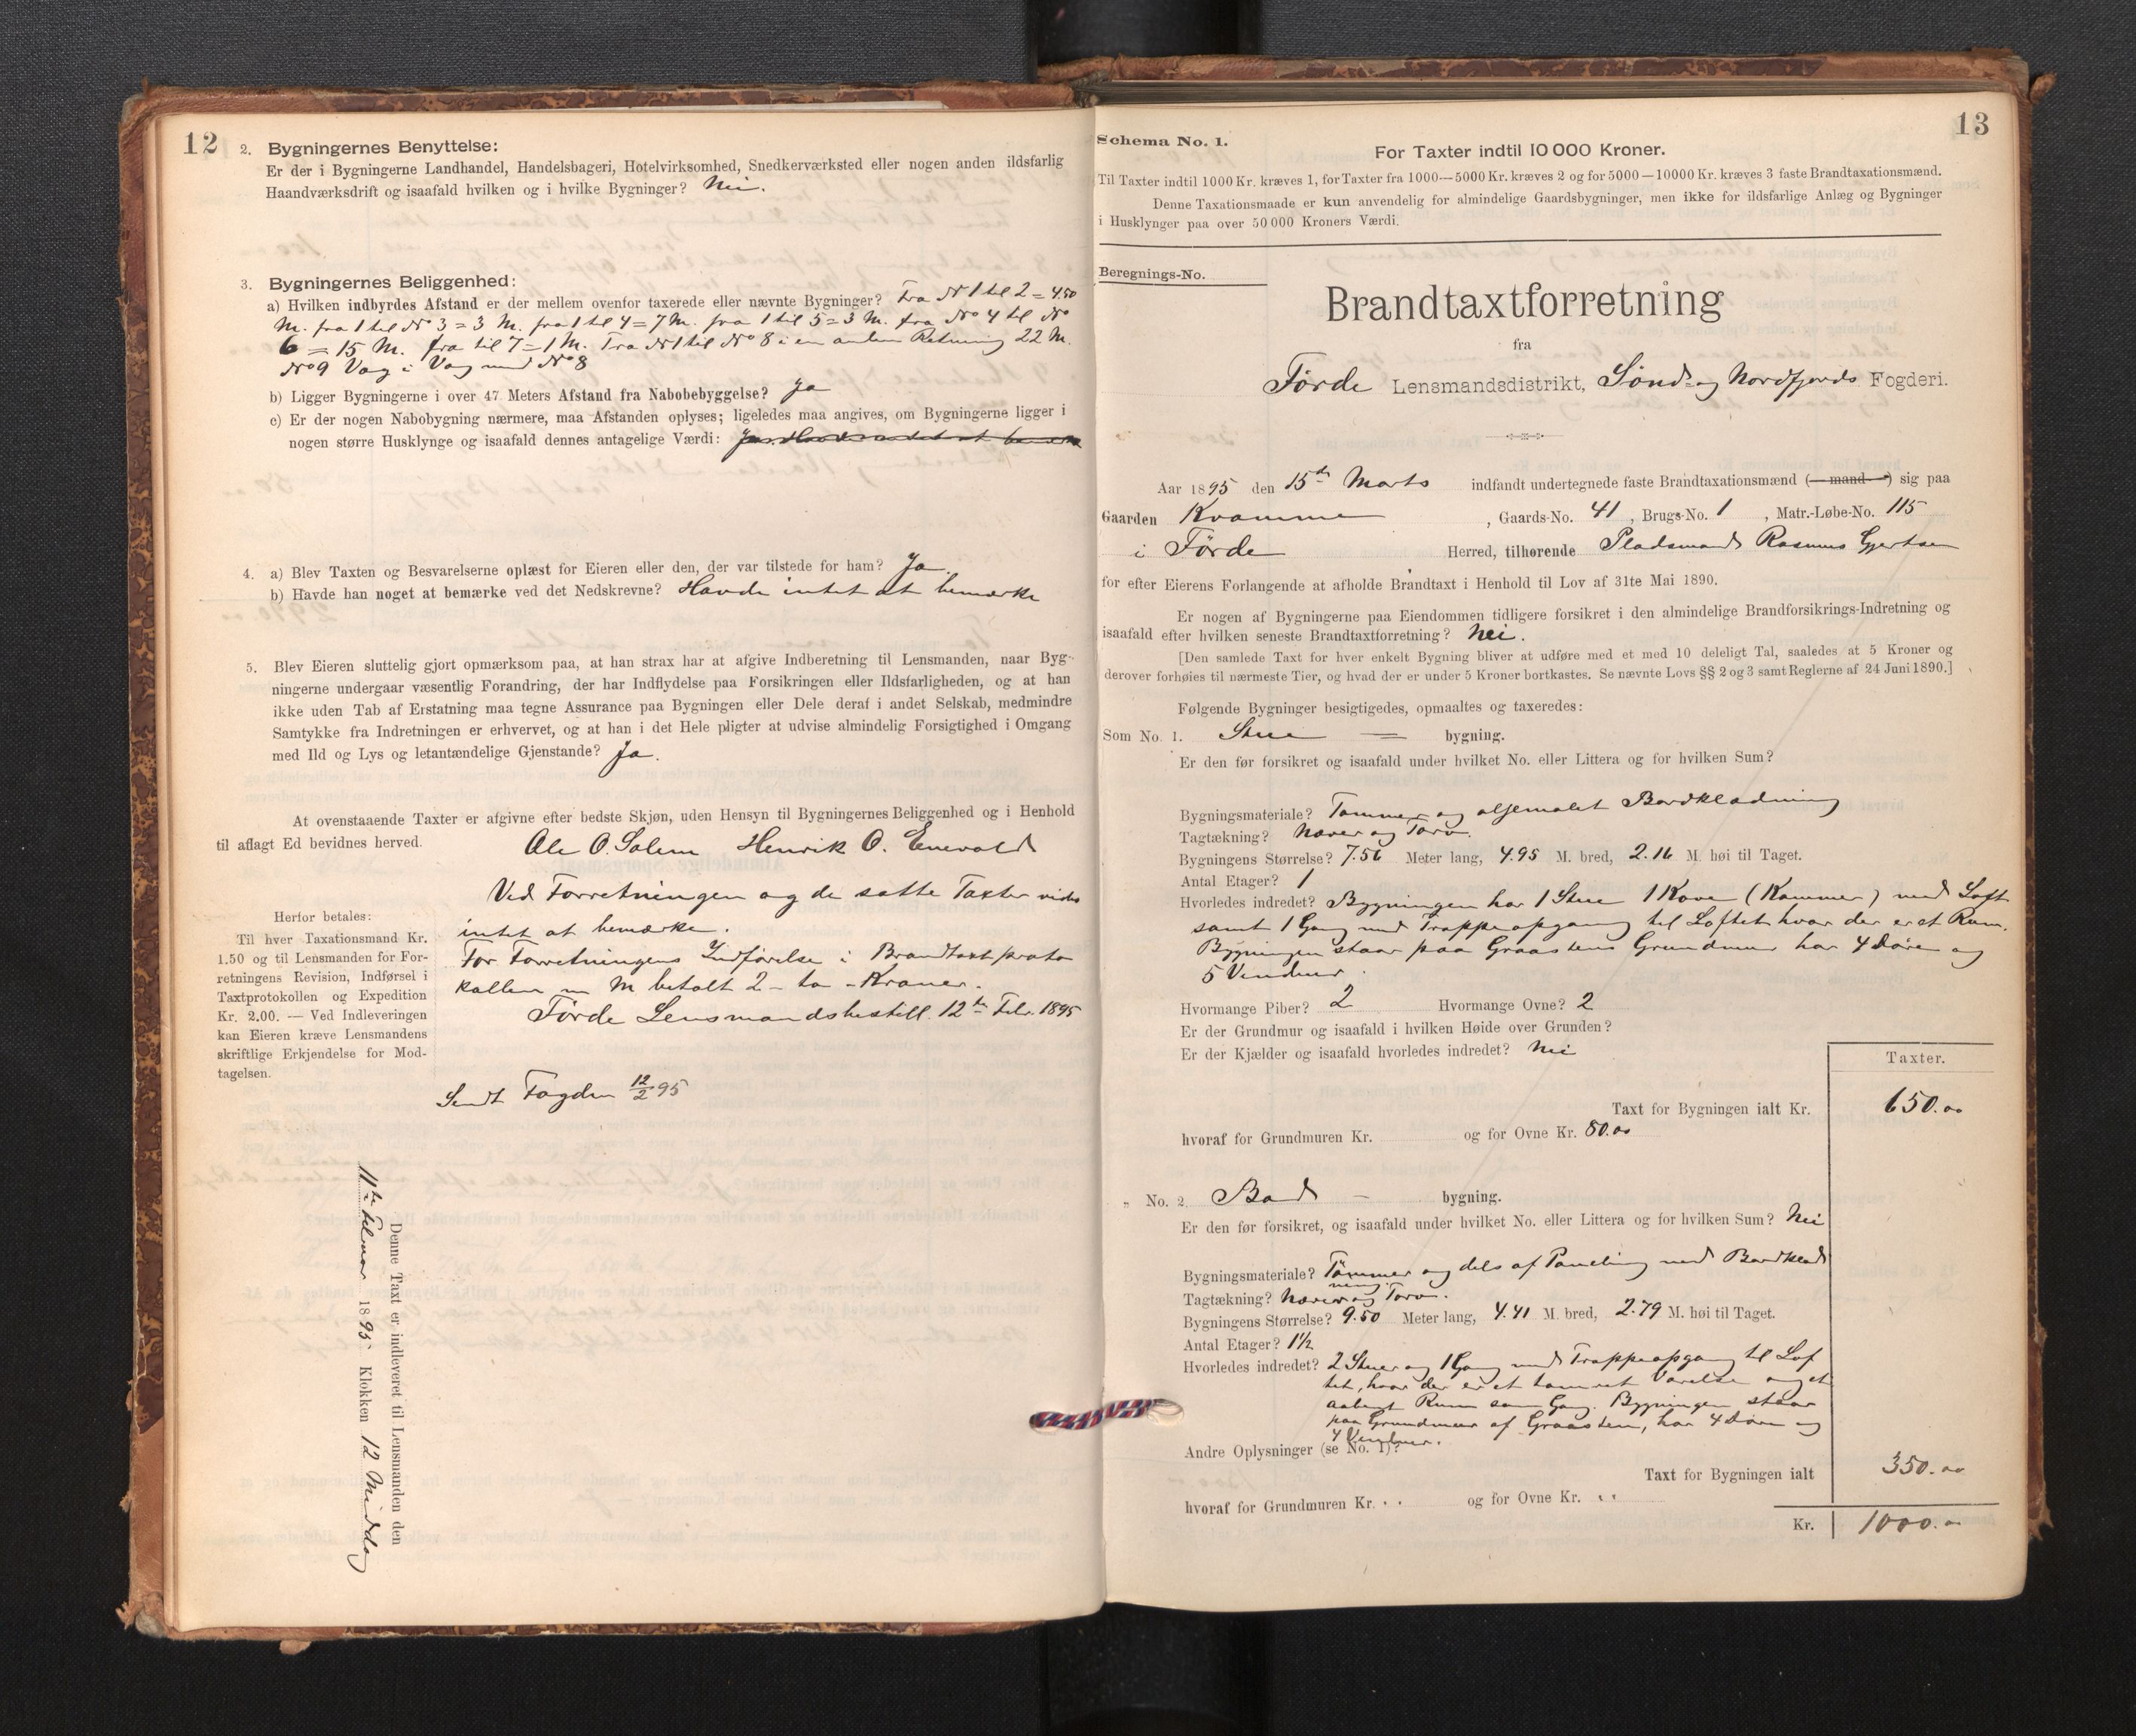 12
2. Bygningernes Benyttelse:
Er der i Bygningerne Landhandel, Handelsbageri, Hotelvirksomhed, Snedkerværksted eller nogen anden ildsfarlig
Haandværksdrift og isaafald hvilken og i hvilke Bygninger? Nei.
3. Bygningernes Beliggenhed:
a) Hvilken indbyrdes Afstand er der mellem ovenfor taxerede eller nævnte Bygninger? Fra No 1 til 2 = 4.50
M. fra 1 til No 3 = 3 M. fra 1 til 4 = 7 M. fra 1 til 5 = 3 M. fra No 4 til No
6 = 15 M. fra til 7 = 1 M. Fra No 1 til No 8 i en anden Retning 22 M.
No 9 Væg i Væg med No 8
b) Ligger Bygningerne i over 47 Meters Afstand fra Nabobebyggelse? Ja
c) Er der nogen Nabobygning nærmere, maa Afstanden oplyses; ligeledes maa angives, om Bygningerne ligger i
nogen større Husklynge og isaafald dennes antagelige Værdi:
4. a) Blev Taxten og Besvarelserne oplæst for Eieren eller den, der var tilstede for ham? Ja.
b) Havde han noget at bemærke ved det Nedskrevne? Havde intet at bemærke
5. Blev Eieren sluttelig gjort opmærksom paa, at han strax har at afgive Indberetning til Lensmanden, naar Byg-
ningerne undergaar væsentlig Forandring, der har Indflydelse paa Forsikringen eller Ildsfarligheden, og at han
ikke uden Tab af Erstatning maa tegne Assurance paa Bygningen eller Dele deraf i andet Selskab, medmindre
Samtykke fra Indretningen er erhvervet, og at han i det Hele pligter at udvise almindelig Forsigtighed i Omgang
med Ild og Lys og letantændelige Gjenstande? Ja.
At ovenstaaende Taxter er afgivne efter bedste Skjøn, uden Hensyn til Bygningernes Beliggenhed og i Henhold
til aflagt Ed bevidnes herved.
Ole O. Solem Henrik O. Enevald
Ved Forretningen og de satte Taxter vides
intet at bemærke.
For Forretningens Indførelse i Brandtaxtproto
kollen m M betalt 2 – to – Kroner.
Førde Lensmandsbestill. 12te Febr. 1895
Herfor betales:
Til hver Taxationsmand Kr.
1.50 og til Lensmanden for For-
retningens Revision, Indførsel i
Taxtprotokollen og Expedition
Kr. 2.00. — Ved Indleveringen
kan Eieren kræve Lensmandens
skriftlige Erkjendelse for Mod-
tagelsen.
Sendt Fogden 12/2 95
Denne Taxt er indleveret til Lensmanden den
11te Februar 1895 Klokken 12 Middag
13
Schema No. 1.
For Taxter indtil 10 000 Kroner.
Til Taxter indtil 1000 Kr. kræves 1, for Taxter fra 1000—5000 Kr. kræves 2 og for 5000—10000 Kr. kræves 3 faste Brandtaxationsmænd.
Denne Taxationsmaade er kun anvendelig for almindelige Gaardsbygninger, men ikke for ildsfarlige Anlæg og Bygninger
i Husklynger paa over 50 000 Kroners Værdi.
Beregnings-No.
Brandtaxtforretning
fra
Förde Lensmandsdistrikt, Sönd- og Nordfjords Fogderi.
Aar 1895 den 15de Marts indfandt undertegnede faste Brandtaxationsmænd (—mand—) sig paa
Gaarden Kvamme, Gaards-No. 41, Brugs-No. 1, Matr.-Løbe-No. 115
i Förde Herred, tilhørende Pladsmand Rasmus Gjertsen
for efter Eierens Forlangende at afholde Brandtaxt i Henhold til Lov af 31te Mai 1890.
Er nogen af Bygningerne paa Eiendommen tidligere forsikret i den almindelige Brandforsikrings-Indretning og
isaafald efter hvilken seneste Brandtaxtforretning? Nei.
[Den samlede Taxt for hver enkelt Bygning bliver at udføre med et med 10 deleligt Tal, saaledes at 5 Kroner og
derover forhøies til nærmeste Tier, og hvad der er under 5 Kroner bortkastes. Se nævnte Lovs §§ 2 og 3 samt Reglerne af 24 Juni 1890.]
Følgende Bygninger besigtigedes, opmaaltes og taxeredes:
Som No. 1. Stue bygning.
Er den før forsikret og isaafald under hvilket No. eller Littera og for hvilken Sum?
Bygningsmateriale? Tømmer og oljemalet Bordklædning
Tagtækning? Næver og Torv.
Bygningens Størrelse? 7.56 Meter lang, 4.95 M. bred, 2.16 M. høi til Taget.
Antal Etager? 1
Hvorledes indredet? Bygningen har 1 Stue 1 Kove (Kammer) med Loft
samt 1 Gang med Trappeopgang til Loftet hvor der er et Rum.
Bygningen staar paa Graastens Grundmur har 4 Døre og
5 Vinduer.
Hvormange Piber? 2 Hvormange Ovne? 2
Er der Grundmur og isaafald i hvilken Høide over Grunden?
Er der Kjælder og isaafald hvorledes indredet? Nei
Taxter.
Taxt for Bygningen ialt Kr. 650.00
hvoraf for Grundmuren Kr. og for Ovne Kr. 80.00
„ No. 2 Bod bygning.
Er den før forsikret, og isaafald under hvilket No. eller Littera og for hvilken Sum? Nei
Bygningsmateriale? Tömmer og dels af Paneling med Bordklæd
ning.
Tagtækning? Næver og Torv.
Bygningens Størrelse? 9.50 Meter lang, 4.41 M. bred, 2.79 M. høi til Taget.
Antal Etager? 1½
Hvorledes indredet? 2 Stuer og 1 Gang med Trappeopgang til Lof
tet, hvor der er et tømret Værelse og et
aabent Rum som Gang. Bygningen staar
paa Grundmur af Graasten, har 4 Døre og
4 Vinduer.
Andre Oplysninger (se No. 1)?
Taxt for Bygningen ialt 350.00
hvoraf for Grundmuren Kr. „ og for Ovne Kr. „
Kr. 1000.00